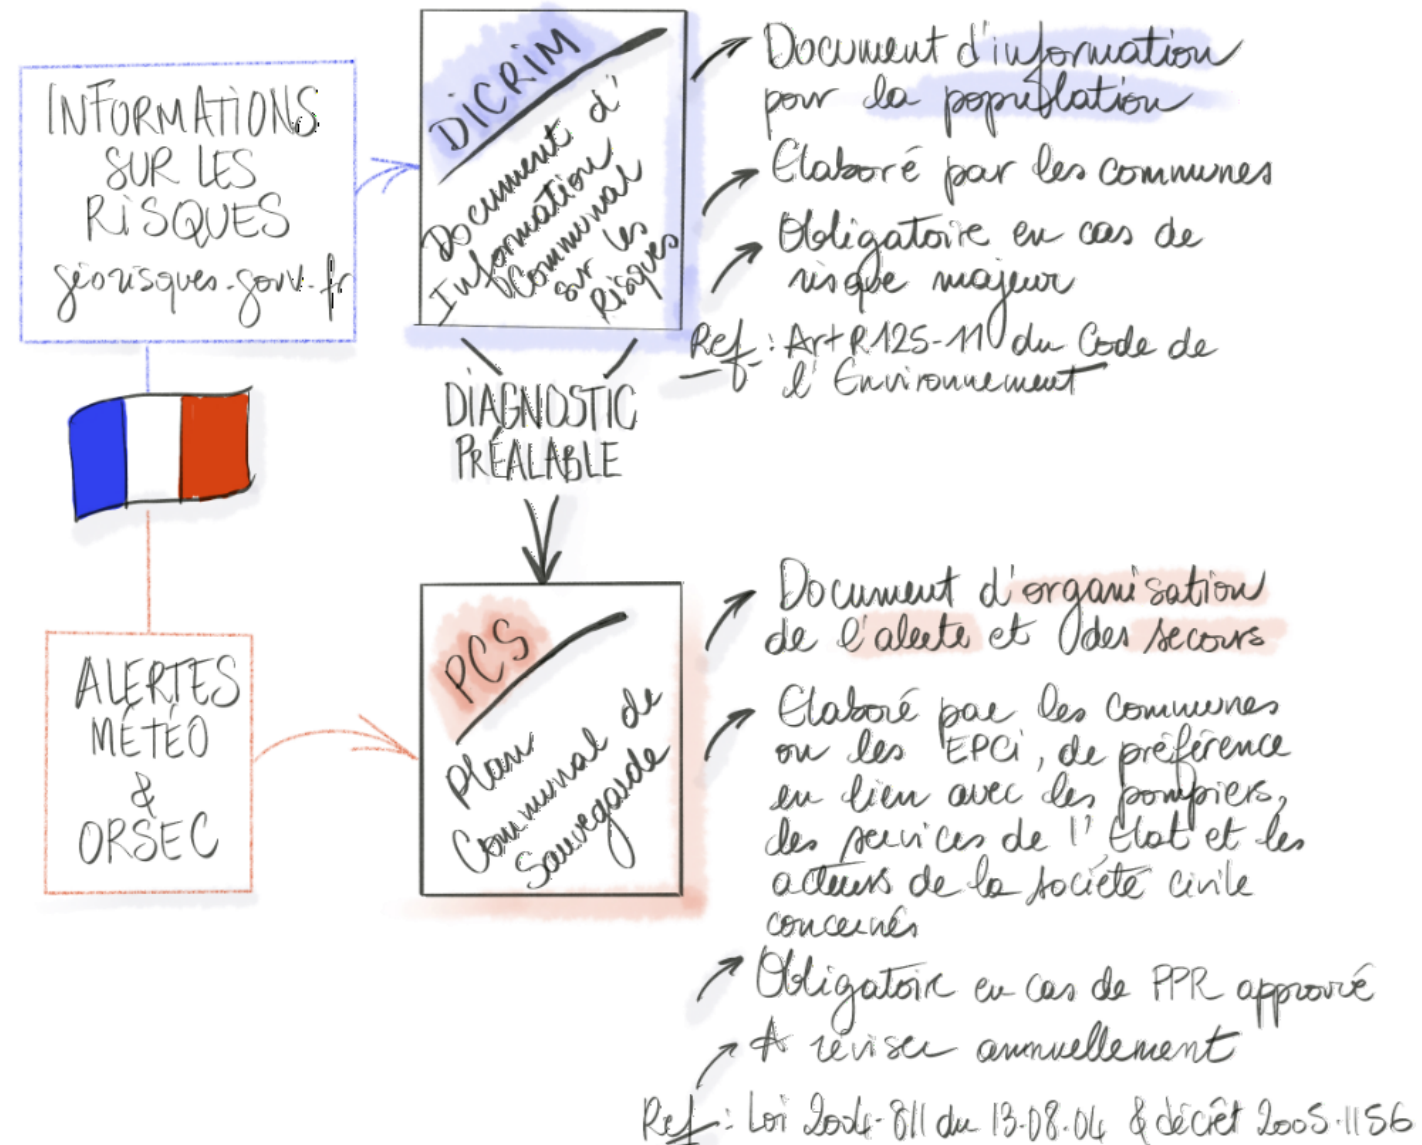 INFORMATIONS
SUR LES
RISQUES
géorisques.gouv.fr
DICRIM
Document d'
Information
Communal
sur les
Risques
Document d'information
pour la population
Elaboré par les communes
Obligatoire en cas de
risque majeur
Ref : Art R125-11 du Code de
l'Environnement
DIAGNOSTIC
PRÉALABLE
ALERTES
MÉTÉO
&
ORSEC
PCS
Plan
Communal de
Sauvegarde
Document d'organisation
de l'alerte et des secours
Elaboré par les communes
ou les EPCi, de préférence
en lien avec les pompiers,
les services de l'Etat et les
acteurs de la société civile
concernés
Obligatoire en cas de PPR approuvé
A réviser annuellement
Ref : Loi 2004-811 du 13.08.04 & décrêt 2005-1156